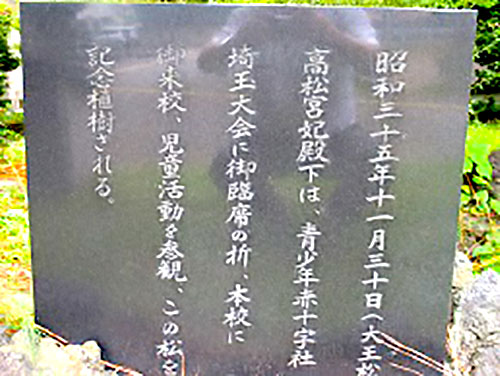 昭和三十五年十一月三十日(大王松
高松宮妃殿下は、青少年赤十字社
埼玉大会に御臨席の折、本校に
御来校、児童活動を参観、この松を
記念植樹される。